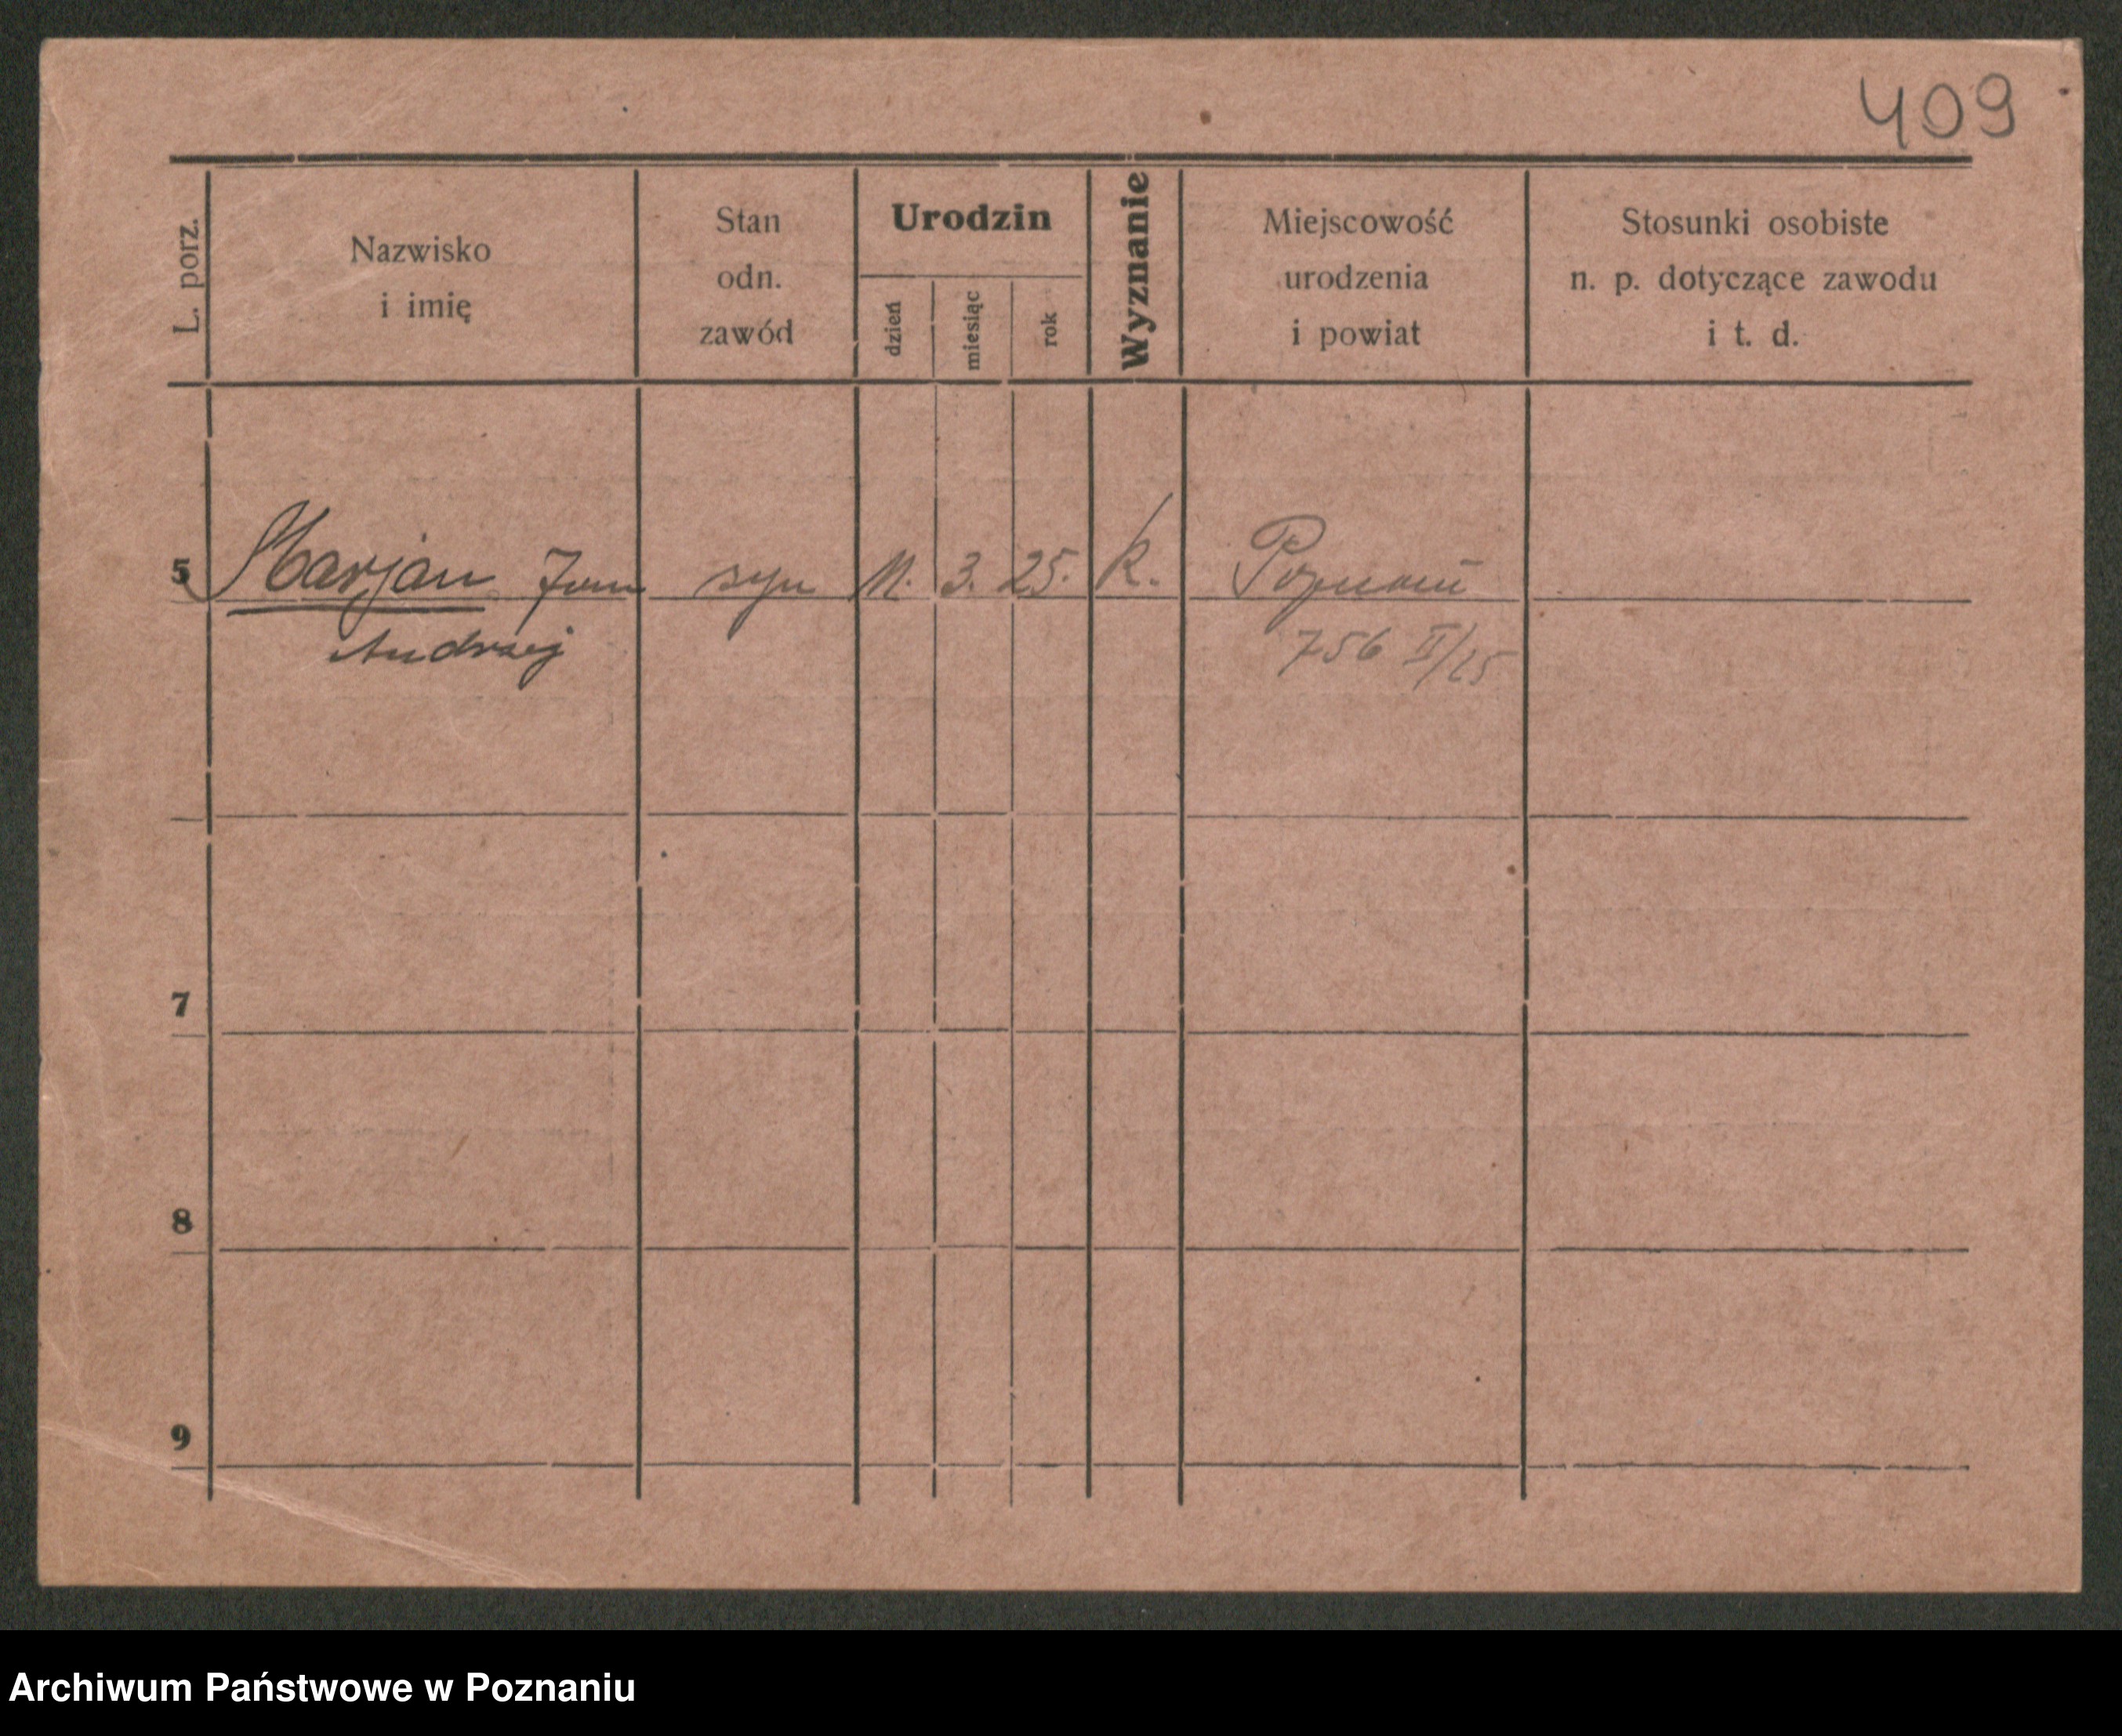 409
L. porz.
Nazwisko
i imię
Stan
odn.
zawód
Urodzin
dzień
miesiąc
rok
Wyznanie
Miejscowość
urodzenia
i powiat
Stosunki osobiste
n. p. dotyczące zawodu
i t. d.
5 Marjan Jan syn 11. 3. 25. k. Poznań
Andrzej 756 II/25
7
8
9
Archiwum Państwowe w Poznaniu